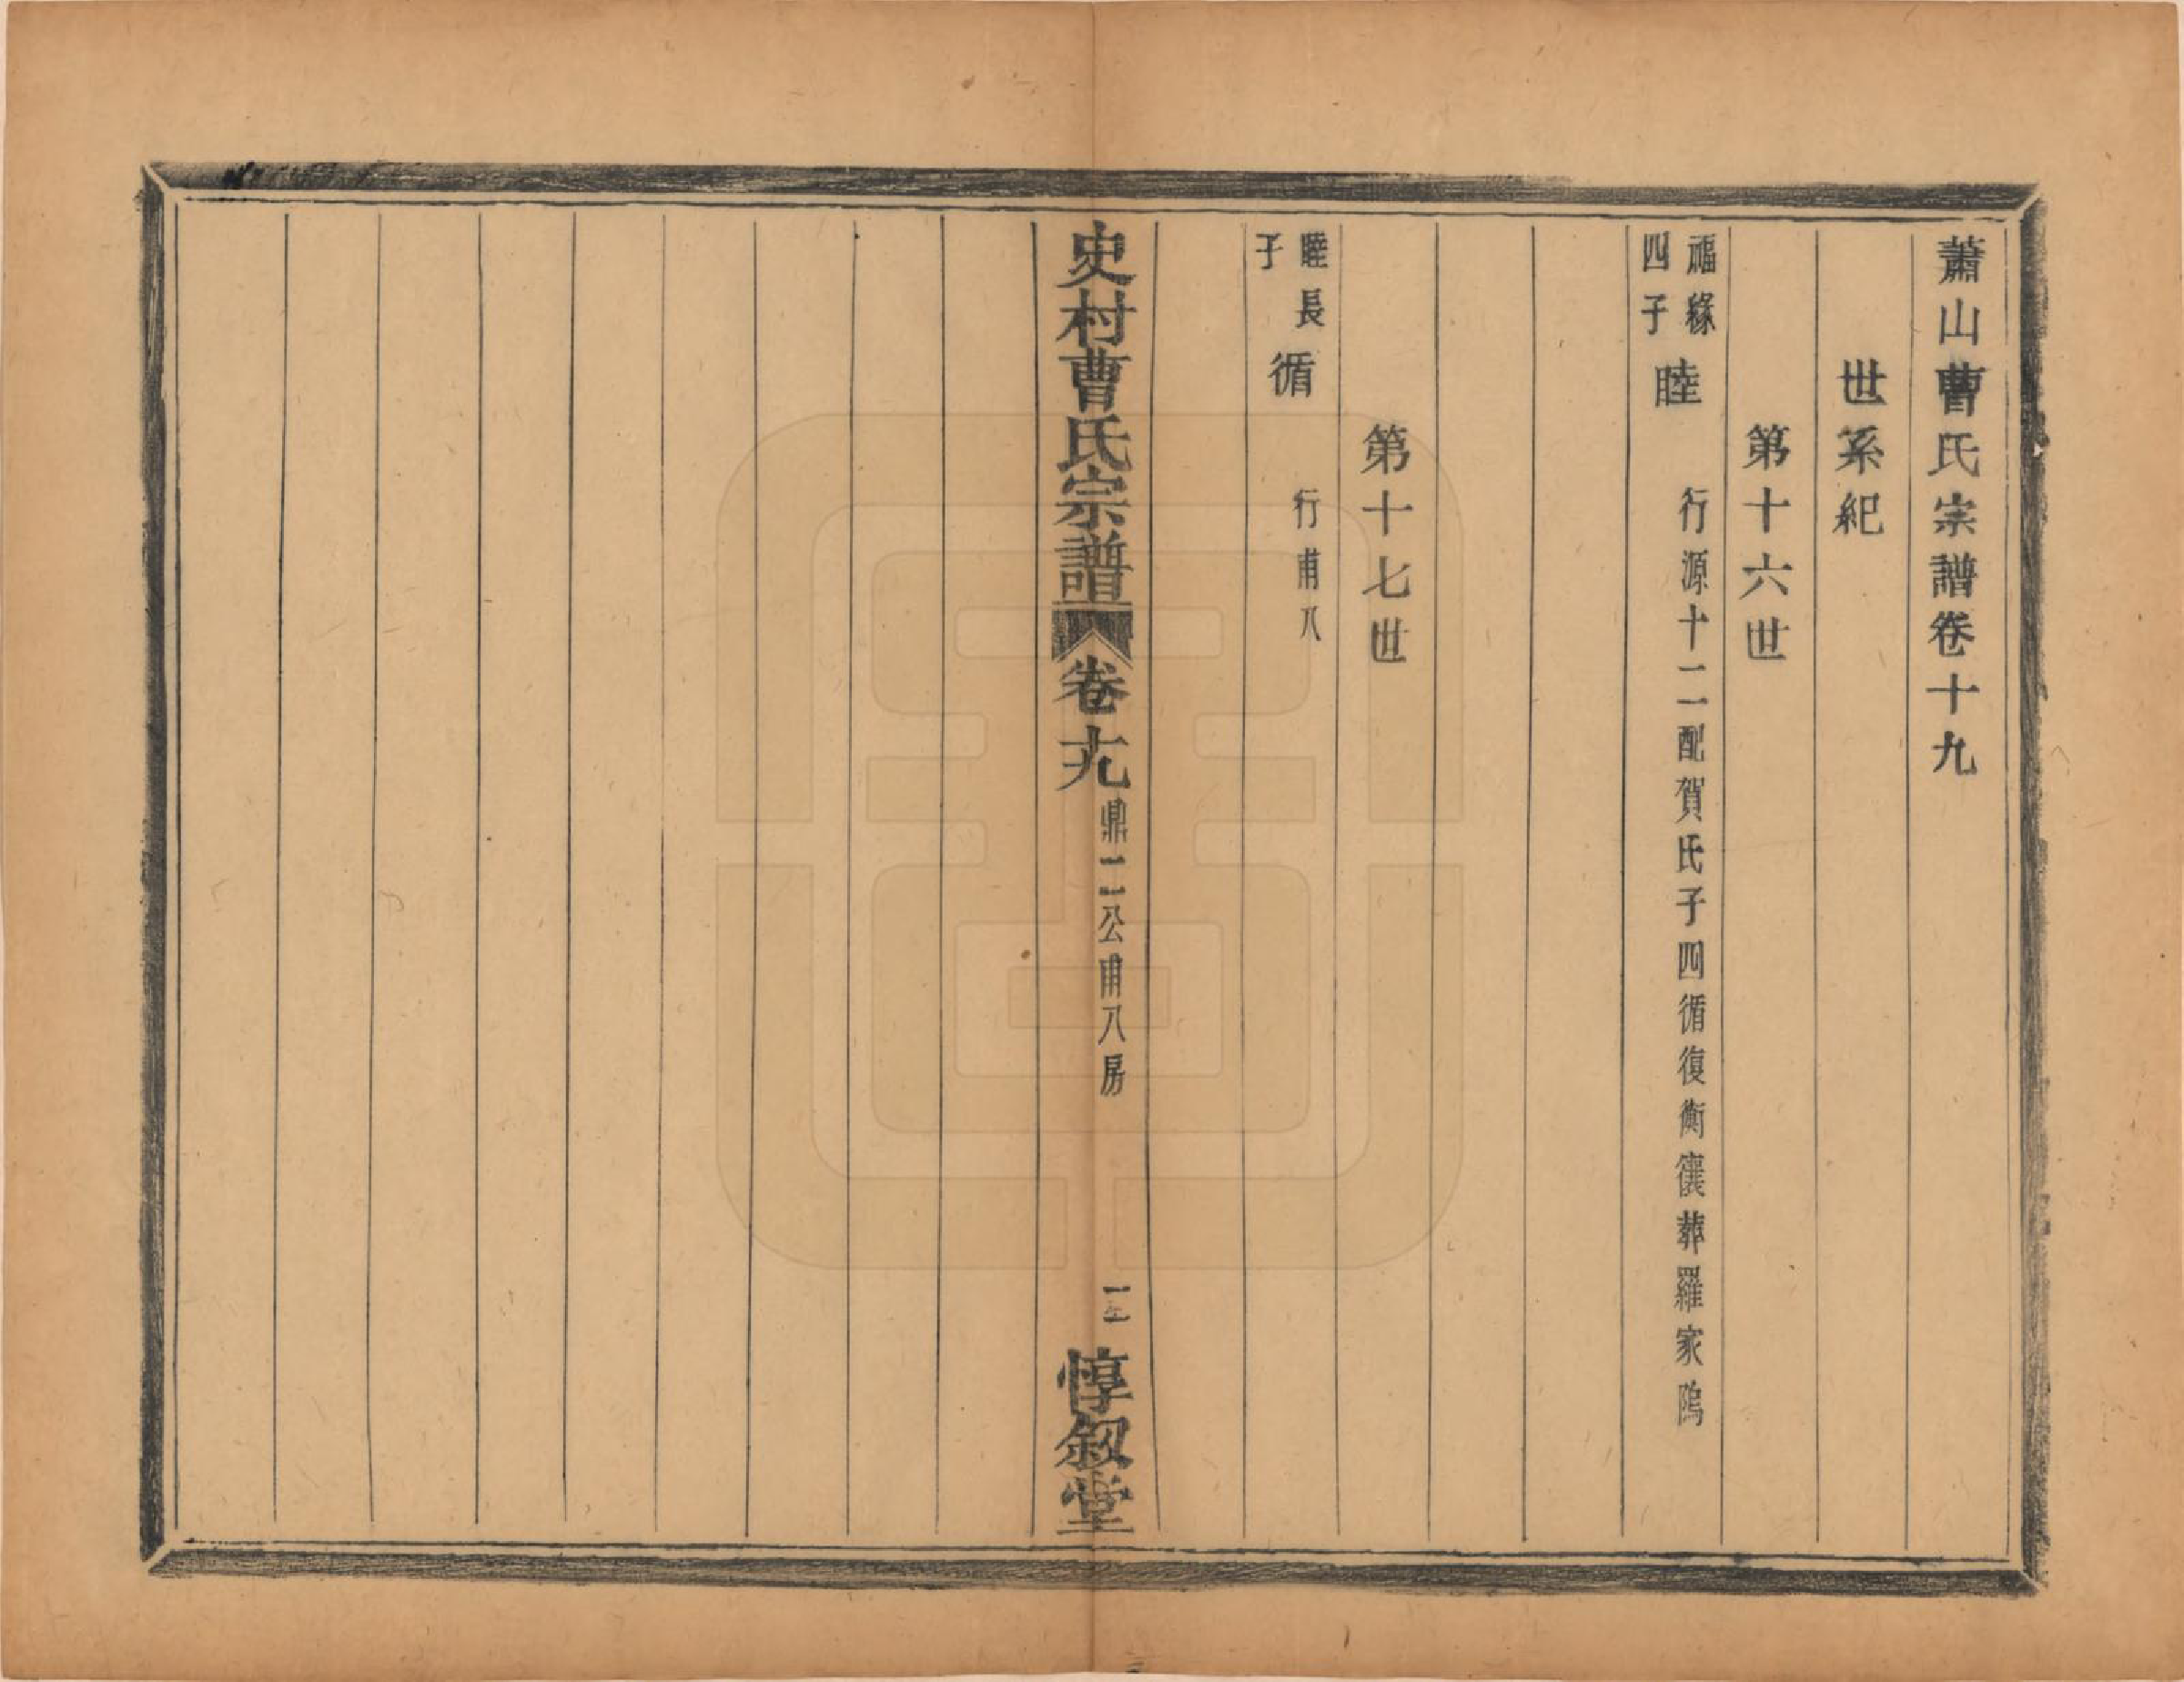 蕭山曹氏宗譜卷十九
世系紀
第十六世
福緣四子
睦
行源十二配賀氏子四循復衡儴葬羅家隖
第十七世
睦長子
循
行甫八
史村曹氏宗譜
卷十九
鼎二公甫八房
惇敘堂